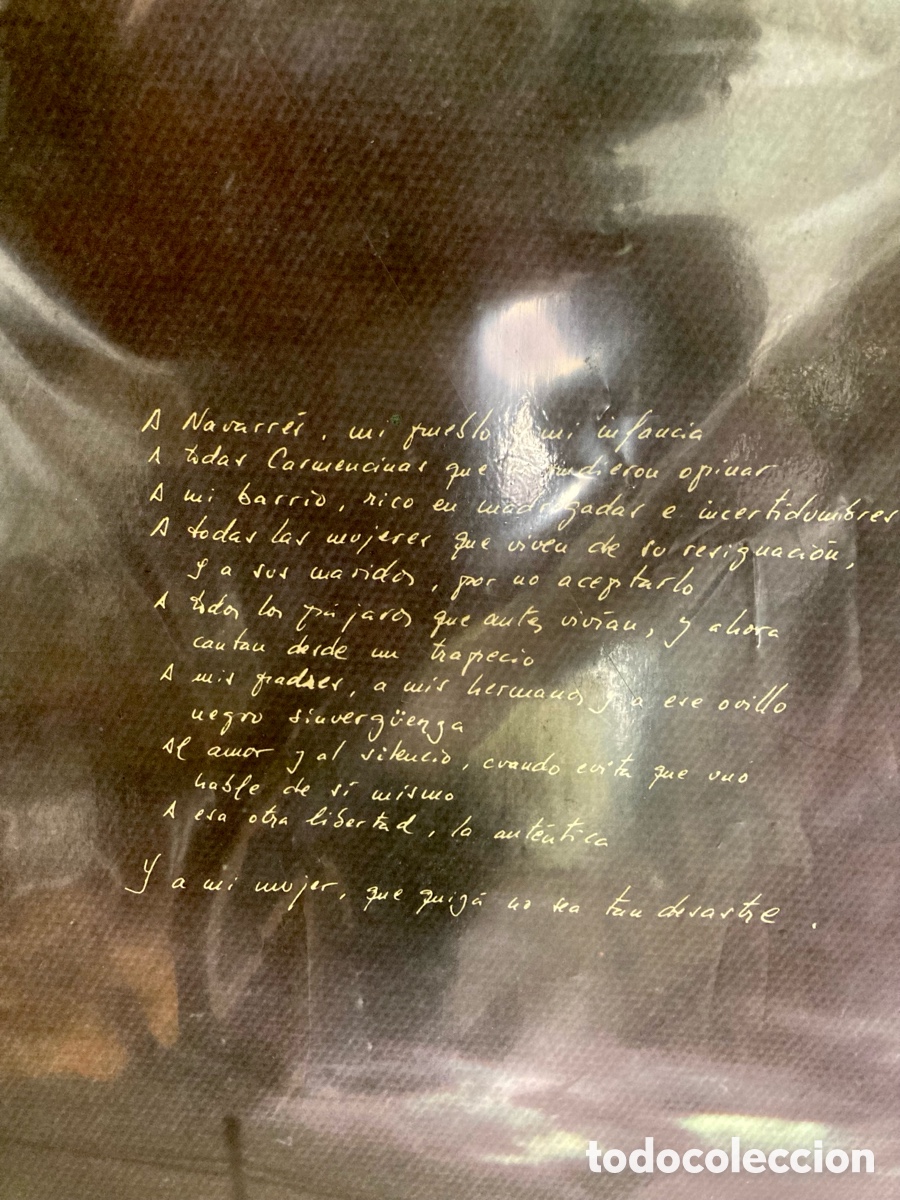 A Navarrés, mi pueblo y mi infancia
A todas Carmencinas que pudieron opinar
A mi barrio, rico en madrugadas e incertidumbres
A todas las mujeres que viven de su resignación,
y a sus maridos, por no aceptarlo
A todos los pájaros que antes vivían, y ahora
cantan desde un trapecio
A mis padres, a mis hermanos y a ese ovillo
negro sinvergüenza
Al amor y al silencio, cuando evita que uno
hable de sí mismo
A esa otra libertad, la auténtica
Y a mi mujer, que quizá no sea tan desastre.
todocoleccion